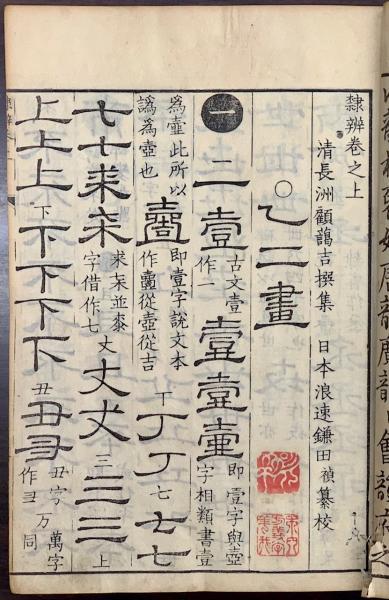 隸辨卷之上
清長洲顧藹吉撰集 日本浪速鎌田禎纂校
○一二畫
一 二 壹 古文壹作一 壹 壹 壷 即壹字與壺字相類書壹
為壺此所以譌為壺也 即壹字說文本作壹從壺從吉 丁 丁 丁 七 七 七
七 七 求 来 求来並桼字借作七 丈 丈 𠀋 三 三 三 上
上 上 上 下 下 下 下 下 丑 丑 彐 丑字作彐 万 萬字同